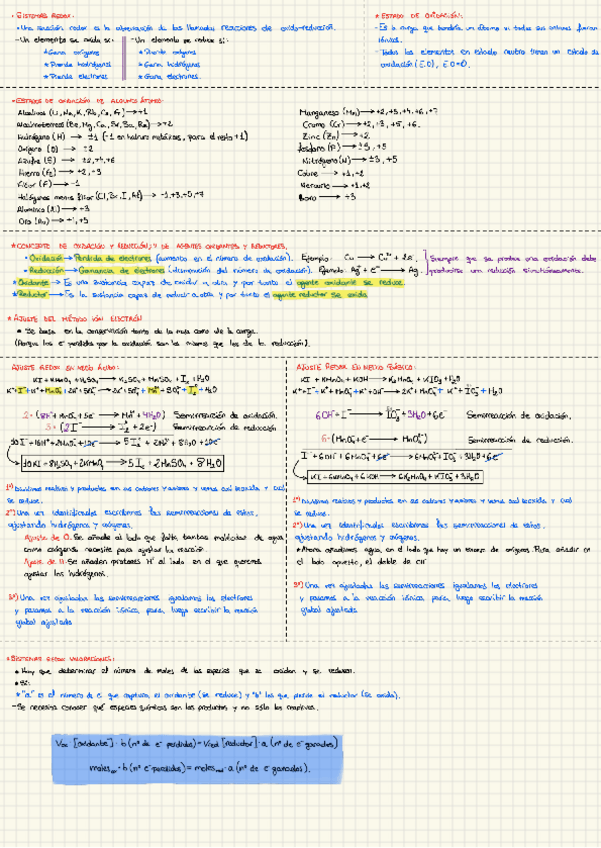 * SISTEMAS REDOX:
• Una reacción redox es la abreviación de las llamadas reacciones de oxido-reducción.
- Un elemento se oxida si:
* Gana oxígenos
* Pierde hidrógenos
* Pierde electrones
- Un elemento se reduce si:
* Pierde oxígenos
* Gana hidrógenos
* Gana electrones.
* ESTADO DE OXIDACIÓN:
- Es la carga que tendría un átomo si todas sus uniones fueran iónicas.
- Todos los elementos en estado neutro tienen un estado de oxidación (E.O), E.O=0.
* ESTADOS DE OXIDACIÓN DE ALGUNOS ÁTOMOS:
Alcalinos (Li, Na, K, Rb, Cs, Fr) → +1
Alcalinotérreos (Be, Mg, Ca, Sr, Ba, Ra) → +2
Hidrógeno (H) → ±1 (-1 en haluros metálicos, para el resto +1)
Oxígeno (O) → ±2
Azufre (S) → ±2,+4,+6
Hierro (Fe) → +2,+3
Flúor (F) → -1
Halógenos menos flúor (Cl, Br, I, At) → -1,+3,+5,+7
Aluminio (Al) → +3
Oro (Au) → +1,+3
Manganeso (Mn) → +2,+3,+4,+6,+7
Cromo (Cr) → +2,+3,+5,+6.
Zinc (Zn) → +2
fósforo (P) → ±3,+5
Nitrógeno (N) → ±3,+5
Cobre → +1,+2
Mercurio → +1,+2
Boro → +3
* CONCEPTO DE OXIDACIÓN Y REDUCCIÓN, Y DE AGENTES OXIDANTES Y REDUCTORES,
• Oxidación → Pérdida de electrones (aumento en el número de oxidación). Ejemplo: Cu → Cu²⁺ + 2e⁻
• Reducción → Ganancia de electrones (disminución del número de oxidación). Ejemplo: Ag⁺ + e⁻ → Ag
Siempre que se produce una oxidación debe producirse una reducción simultáneamente.
* Oxidante → Es una sustancia capaz de oxidar a otra y por tanto el agente oxidante se reduce.
* Reductor → Es la sustancia capaz de reducir a otra y por tanto el agente reductor se oxida.
* AJUSTE DEL MÉTODO IÓN ELECTRÓN
• Se basa en la conservación tanto de la masa como de la carga.
(Porque los e⁻ perdidos por la oxidación son los mismos que los de la reducción).
AJUSTE REDOX EN MEDIO ÁCIDO:
KI + KMnO₄ + H₂SO₄ → K₂SO₄ + MnSO₄ + I₂ + H₂O
2·(8H⁺ + MnO₄ + 5e⁻ → Mn²⁺ + 4H₂O) Semirreacción de oxidación.
5·(2I⁻ → I₂ + 2e⁻) Semirreacción de reducción
10I⁻ + 16H⁺ + 2MnO₄ + 10e⁻ → 5I₂ + 2Mn²⁺ + 8H₂O + 10e⁻
10KI + 8H₂SO₄ + 2KMnO₄ → 5I₂ + 2MnSO₄ + 8H₂O
1º) Disolvemos reactivos y productos en sus cationes y aniones y vemos cuál se oxida y cuál se reduce.
2º) Una vez identificados escribimos las semirreacciones de estos, ajustando hidrógenos y oxígenos.
Ajuste de O: Se añade al lado que falta, tantas moléculas de agua como oxígenos necesite para ajustar la reacción.
Ajuste de H: Se añaden protones H⁺ al lado en el que queremos ajustar los hidrógenos.
3º) Una vez ajustadas las semirreacciones igualamos los electrones y pasamos a la reacción iónica, para luego escribir la reacción global ajustada
AJUSTE REDOX EN MEDIO BÁSICO:
KI + KMnO₄ + KOH → K₂MnO₄ + KIO₃ + H₂O
6OH⁻ + I⁻ → IO₃⁻ + 3H₂O + 6e⁻ Semirreacción de oxidación.
6·(MnO₄ + e⁻ → MnO₄²⁻) Semirreacción de reducción.
I⁻ + 6OH⁻ + 6MnO₄ + 6e⁻ → 6MnO₄²⁻ + IO₃⁻ + 3H₂O + 6e⁻
KI + 6KMnO₄ + 6KOH → 6K₂MnO₄ + KIO₃ + 3H₂O
1º) Disolvemos reactivos y productos en sus cationes y aniones y vemos cuál se oxida y cuál se reduce.
2º) Una vez identificados escribimos las semirreacciones de estos, ajustando hidrógenos y oxígenos.
* Ahora añadiremos agua, en el lado que hay un exceso de oxígenos. Para añadir en el lado opuesto, el doble de OH⁻
3º) Una vez ajustadas las semirreacciones igualamos los electrones y pasamos a la reacción iónica, para luego escribir la reacción global ajustada
* SISTEMAS REDOX VALORACIONES:
• Hay que determinar el número de moles de las especies que se oxidan y se reducen.
• Si:
* "a" es el número de e⁻ que captura el oxidante (se reduce) y "b" los que pierde el reductor (se oxida).
- Se necesita conocer qué especies químicas son los productos y no sólo los reactivos.
Vox [oxidante] · b (nº de e⁻ perdidos) = Vred [reductor] · a (nº de e⁻ ganados)
molesox · b (nº e⁻ perdidos) = molesred · a (nº de e⁻ ganados).